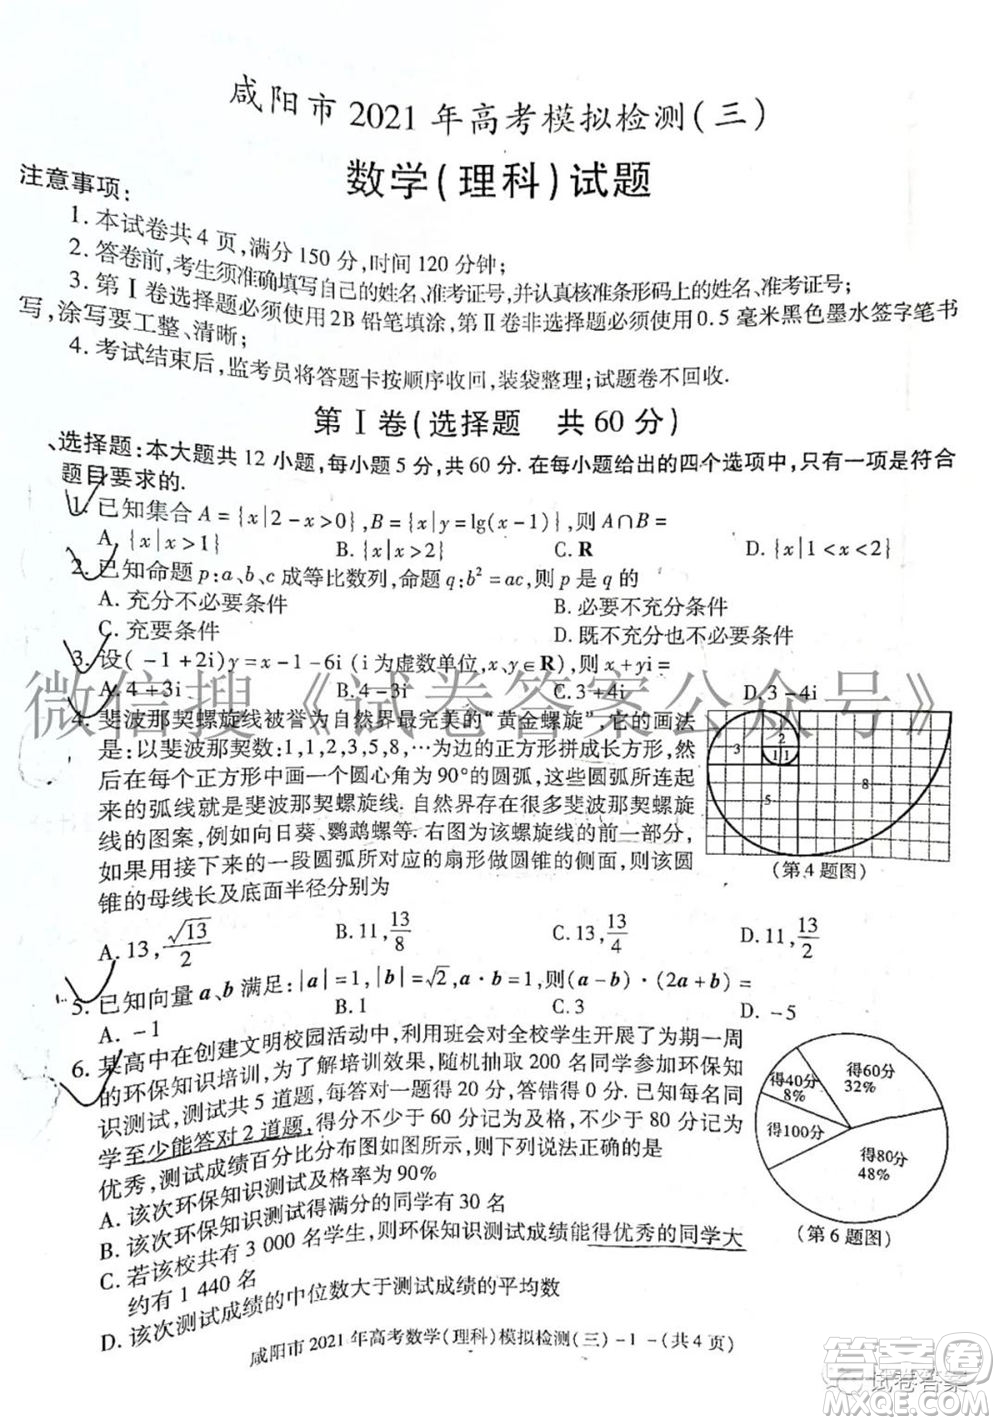 咸阳市2021年高考模拟检测(三)
数学(理科)试题
注意事项:
1. 本试卷共4页,满分150分,时间120分钟;
2. 答卷前,考生须准确填写自己的姓名、准考证号,并认真核准条形码上的姓名、准考证号;
3. 第Ⅰ卷选择题必须使用2B铅笔填涂,第Ⅱ卷非选择题必须使用0.5毫米黑色墨水签字笔书
写,涂写要工整、清晰;
4. 考试结束后,监考员将答题卡按顺序收回,装袋整理;试题卷不回收.
第Ⅰ卷(选择题 共60分)
、选择题:本大题共12小题,每小题5分,共60分. 在每小题给出的四个选项中,只有一项是符合
题目要求的.
1. 已知集合A={x|2-x>0},B={x|y=lg(x-1)},则A∩B=
A. {x|x>1} B. {x|x>2} C. R D. {x|1<x<2}
2. 已知命题p:a、b、c成等比数列,命题q:b²=ac,则p是q的
A. 充分不必要条件 B. 必要不充分条件
C. 充要条件 D. 既不充分也不必要条件
3. 设(-1+2i)y=x-1-6i(i为虚数单位,x,y∈R),则x+yi=
A. 4+3i B. 4-3i C. 3+4i D. 3-4i
微信搜《试卷答案公众号》
4. 斐波那契螺旋线被誉为自然界最完美的“黄金螺旋”,它的画法
是:以斐波那契数:1,1,2,3,5,8,…为边的正方形拼成长方形,然
后在每个正方形中画一个圆心角为90°的圆弧,这些圆弧所连起
来的弧线就是斐波那契螺旋线. 自然界存在很多斐波那契螺旋
线的图案,例如向日葵、鹦鹉螺等. 右图为该螺旋线的前一部分,
如果用接下来的一段圆弧所对应的扇形做圆锥的侧面,则该圆
锥的母线长及底面半径分别为
3 2 1 1 5 8
(第4题图)
A. 13,√13/2 B. 11,13/8 C. 13,13/4 D. 11,13/2
5. 已知向量a、b满足:|a|=1,|b|=√2,a·b=1,则(a-b)·(2a+b)=
A. -1 B. 1 C. 3 D. -5
6. 某高中在创建文明校园活动中,利用班会对全校学生开展了为期一周
的环保知识培训,为了解培训效果,随机抽取200名同学参加环保知
识测试,测试共5道题,每答对一题得20分,答错得0分. 已知每名同
学至少能答对2道题,得分不少于60分记为及格,不少于80分记为
优秀,测试成绩百分比分布图如图所示,则下列说法正确的是
A. 该次环保知识测试及格率为90%
B. 该次环保知识测试得满分的同学有30名
C. 若该校共有3 000名学生,则环保知识测试成绩能得优秀的同学大
约有1 440名
D. 该次测试成绩的中位数大于测试成绩的平均数
得40分
8%
得60分
32%
得100分
得80分
48%
(第6题图)
咸阳市2021年高考数学(理科)模拟检测(三)-1-(共4页)
答案圈
试卷答案
MXQE.COM